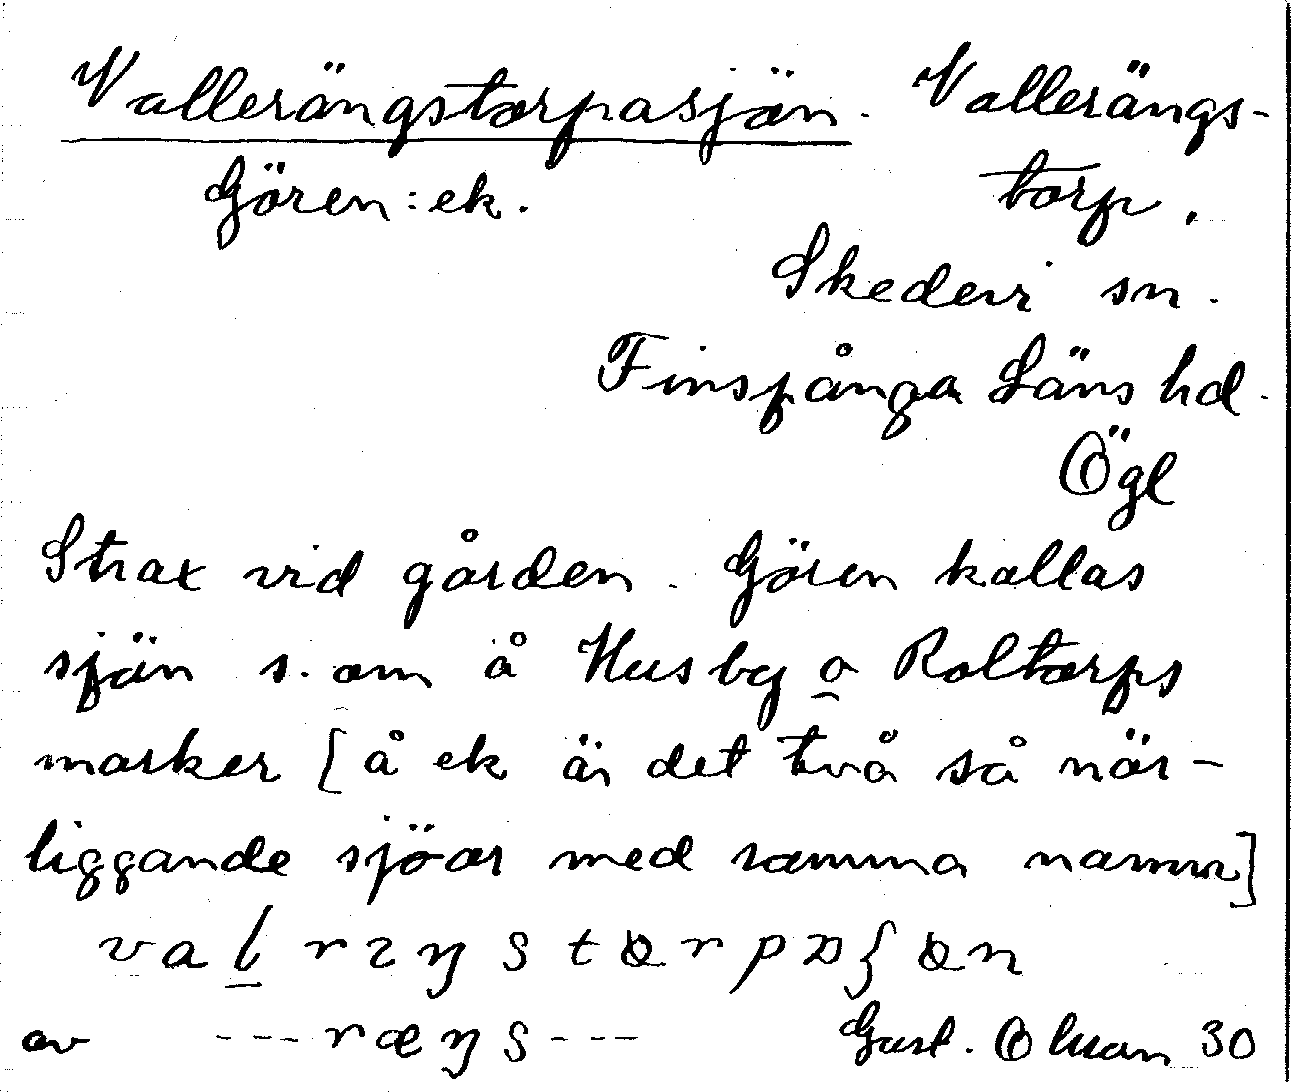 Vallerängstorpasjön. Vallerängs-
torp.
Gören: ek.
Skedevi sn.
Finspånga Läns hd.
Ögl
Strax vid gården. Gören kallas
sjön s. om å Husby o Roltorps
marker [å ek är det två så när-
liggande sjöar med samma namn]
av
Gust. Olsson 30